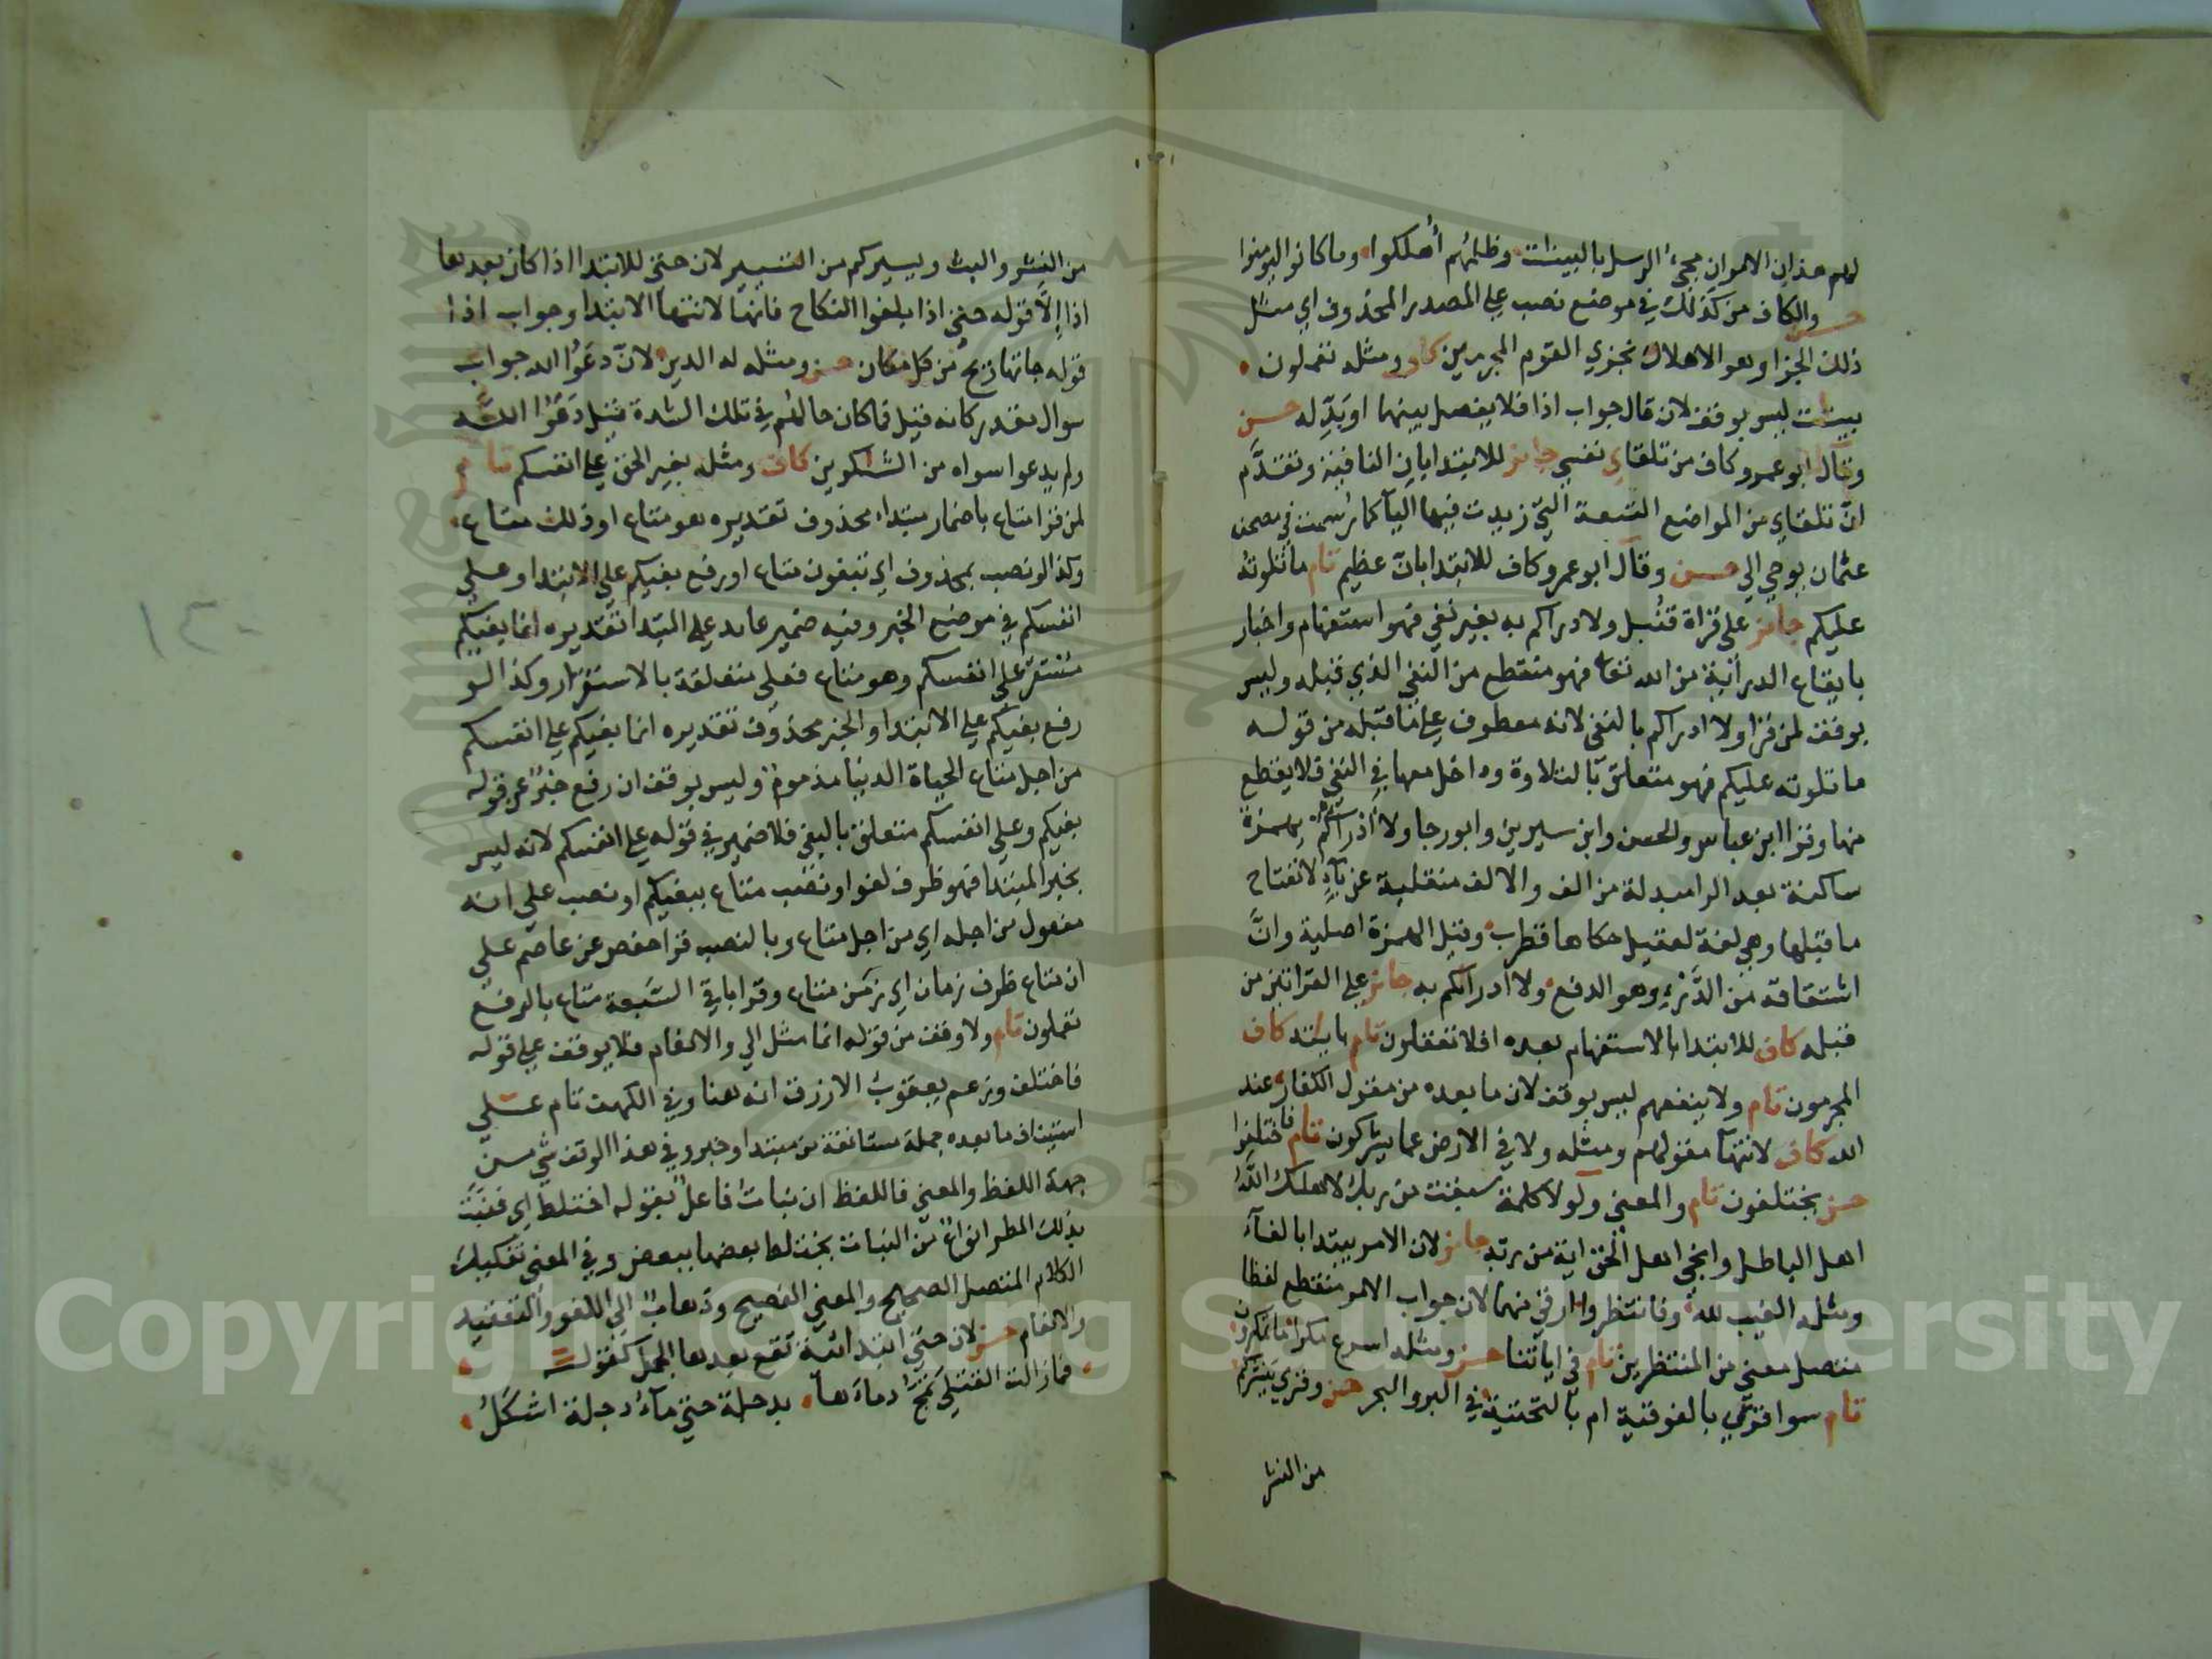 لهم هذان الامران مجيء الرسل بالبينات وظلمهم أهلكوا وما كانوا ليومنوا
حسن والكاف من كذلك في موضع نصب على المصدر المحذوف اي مثل
ذلك الجزا وهو الاهلاك نجزي القوم المجرمين كاف ومثله تعملون
بينات ليس بوقف لان قال جواب اذا فلا يفصل بينهما او بدله حسن
وقال ابو عمرو كاف من تلقاي نفسي جايز للابتدا بان النافية وتقدم
ان تلقاي من المواضع التسعة التي زيدت فيها اليا كما رسمت في مصحف
عثمان يوحي الي حسن وقال ابو عمرو كاف للابتدا بان عظيم تام ما تلوته
عليكم جايز على قراة قنبل ولادراكم به بغير نفي فهو استفهام واخبار
بايقاع الدراية من الله تعا فهو منقطع من النفي الذي قبله وليس
بوقف لمن قرا ولا ادراكم بالنفي لانه معطوف على ما قبله من قوله
ما تلوته عليكم فهو متعلق بالتلاوة وداخل معها في النفي فلا يقطع
منها وقرا ابن عباس والحسن وابن سيرين وابو رجا ولا أدرأتكم به بهمزة
ساكنة بعد الرا مبدلة من الف والالف منقلبة عن ياء لانفتاح
ما قبلها وهي لغة لعقيل حكاها قطرب وقيل الهمزة اصلية وان
اشتقاقه من الدرء وهو الدفع ولا ادراكم به جايز على القراتين من
قبله كاف للابتدا بالاستفهام بعده افلا تعقلون تام باياته كاف
المجرمون تام ولا ينفعهم ليس بوقف لان ما بعده من مقول الكفار عند
الله كاف لانتها مقولهم ومثله ولا في الارض عما يشركون تام فاختلفوا
حسن يختلفون تام والمعنى ولولا كلمة سبقت من ربك لاهلك الله
اهل الباطل وانجي اهل الحق اية من ربه جايز لان الامر يبتدا بالفاء
ومثله الغيب لله وفانتظروا ارقي منهما لان جواب الامر منقطع لفظا
متصل معنى من المنتظرين تام في اياتنا حسن ومثله اسرع مكرا ما تمكرون
تام سوا قري بالفوقية ام بالتحتية في البر والبحر حسن وقري ينشركم
من النشر
من النشر والبث ويسيركم من التسيير لان حتى للابتدا اذا كان بعدها
اذا إلا قوله حتى اذا بلغوا النكاح فانها لانتها الابتدا وجواب اذا
قوله جاتها ريح من كل مكان حسن ومثله له الدين لان دعوا الله جواب
سوال مقدر كانه قيل فما كان حالهم في تلك الشدة قيل دعوا الله
ولم يدعوا سواه من الشاكرين كاف ومثله بغير الحق على انفسكم تام
لمن قرا متاع باضمار مبتداء محذوف تقديره هو متاع او ذلك متاع
وكذا لو نصب بمحذوف اي تبغون متاع او رفع بغيكم على الابتدا وعلى
انفسكم في موضع الخبر وفيه ضمير عايد على المبتدا تقديره انما بغيكم
مستقر على انفسكم وهو متاع فعلى متعلقة بالاستقرار وكذا لو
رفع بغيكم على الابتدا والخبر محذوف تقديره انما بغيكم على انفسكم
من اجل متاع الحياة الدنيا مذموم وليس بوقف ان رفع خبرا عن قوله
بغيكم وعلى انفسكم متعلق بالبغي فلا ضمير في قوله على انفسكم لانه ليس
بخبر المبتدا فهو ظرف لغو او نصب متاع ببغيكم او نصب على انه
مفعول من اجله اي من اجل متاع وبالنصب قرا حفص عن عاصم على
ان متاع ظرف زمان اي زمن متاع وقرا باقي السبعة متاع بالرفع
تعملون تام ولا وقف من قوله انما مثل الي والانعام فلا يوقف على قوله
فاختلف وزعم يعقوب الازرق انه هنا وفي الكهف تام على
استيناف ما بعده جملة مستانفة من مبتدا وخبر وفي هذا الوقف شي من
جهة اللفظ والمعنى فاللفظ ان نبات فاعل بقوله اختلط اي فنبت
بذلك المطر انواع من النبات يختلط بعضها ببعض وفي المعنى تفكيك
الكلام المتصل الصحيح والمعنى الفصيح وذهاب الى اللغو والتعقيد
والانعام حسن لان حتى ابتدائية تقع بعدها الجمل كقوله
فما زالت القتلى تمج دماءها بدجلة حتى ماء دجلة اشكل
١٣٠
Copyright © King Saud University
1957